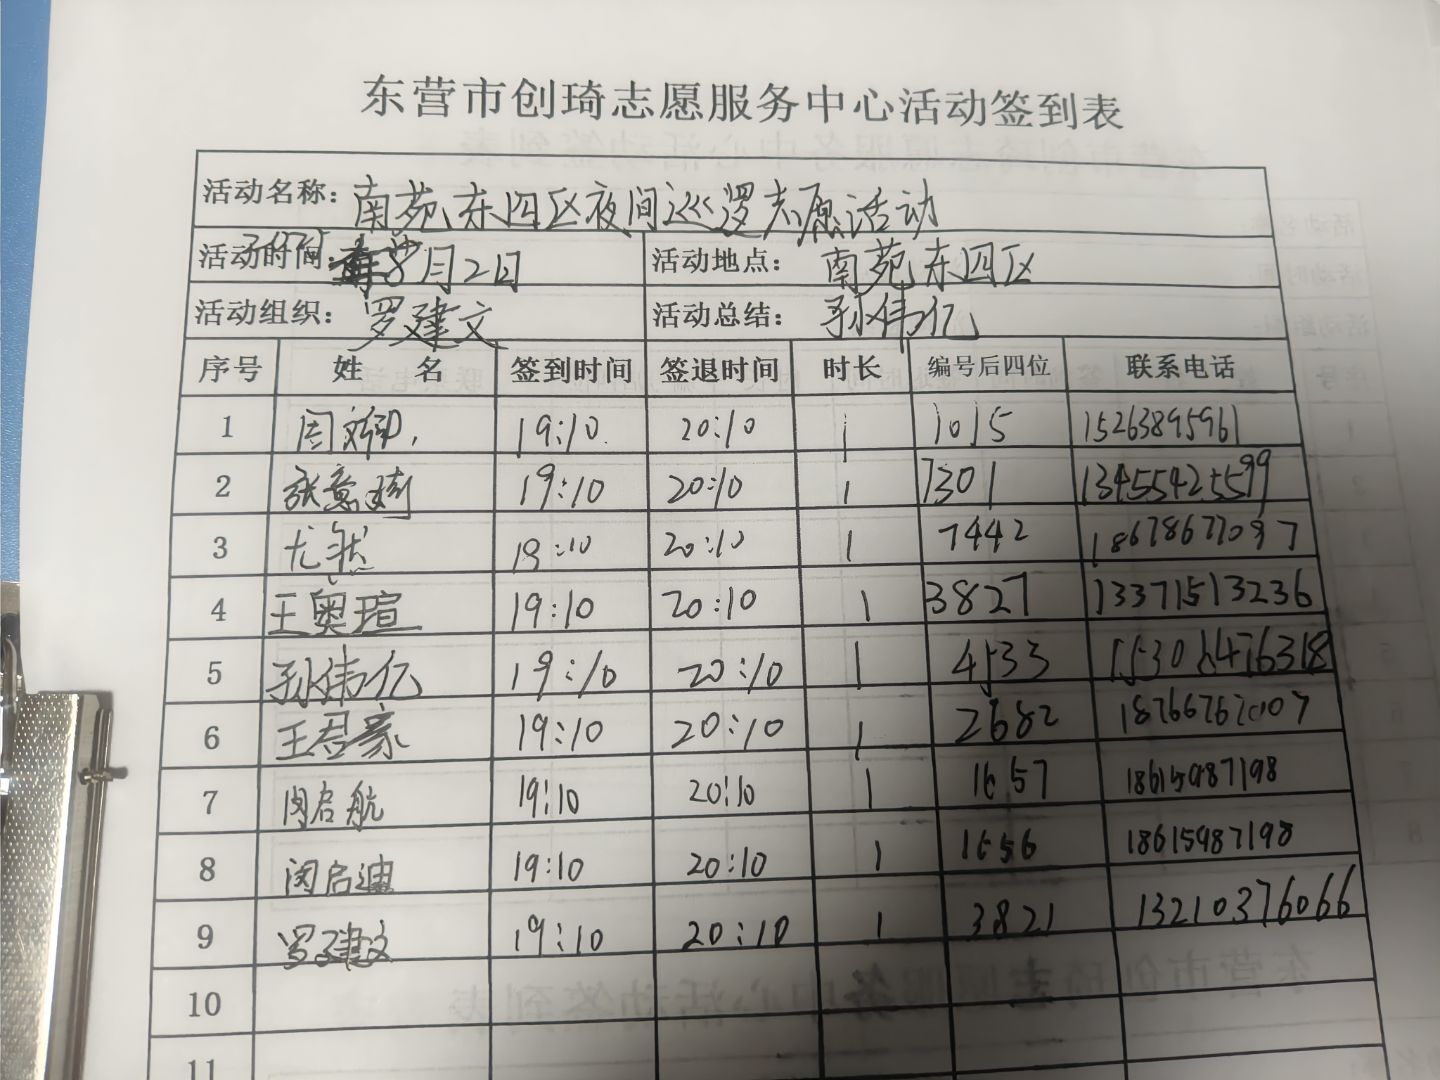 东营市创琦志愿服务中心活动签到表
活动名称：南苑东四区夜间巡逻志愿活动
活动时间：8月2日 活动地点：南苑东四区
活动组织：罗建文 活动总结：孙伟亿
序号 姓名 签到时间 签退时间 时长 编号后四位 联系电话
1 19:10 20:10 1 1015 15263895961
2 19:10 20:10 1 7301 13455425599
3 尤然 19:10 20:10 1 7442
4 王奥瑄 19:10 20:10 1 3827 13371513236
5 孙伟亿 19:10 20:10 1 4533
6 王君豪 19:10 20:10 1 2682
7 闵启航 19:10 20:10 1 1657 18615987198
8 闵启迪 19:10 20:10 1 1656 18615987198
9 罗建文 19:10 20:10 1 3821 13210376066
10
11